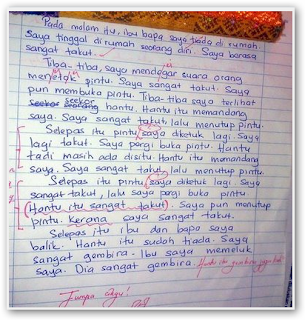 Pada malam itu, ibu bapa saya tiada di rumah.
Saya tinggal di rumah seorang diri. Saya berasa
sangat takut.
Tiba-tiba, saya mendengar suara orang
mengetok pintu. Saya sangat takut. Saya
pun membuka pintu. Tiba-tiba saya terlihat
seekor hantu. Hantu itu memandang
saya. Saya sangat takut, lalu menutup pintu.
Selepas itu pintu saya diketuk lagi. Saya
lagi takut. Saya pergi buka pintu. Hantu
tadi masih ada disitu. Hantu itu memandang
saya. Saya sangat takut, lalu menutup pintu.
Selepas itu pintu saya diketuk lagi. Saya
sangat takut, lalu saya pergi buka pintu.
Hantu itu sangat takut. Saya pun menutup
pintu. Kerana saya sangat takut.
Selepas itu ibu dan bapa saya
balik. Hantu itu sudah tiada. Saya
sangat gembira. Ibu saya memeluk
saya. Dia sangat gembira. Hantu itu gembira juga
Jumpa cikgu!